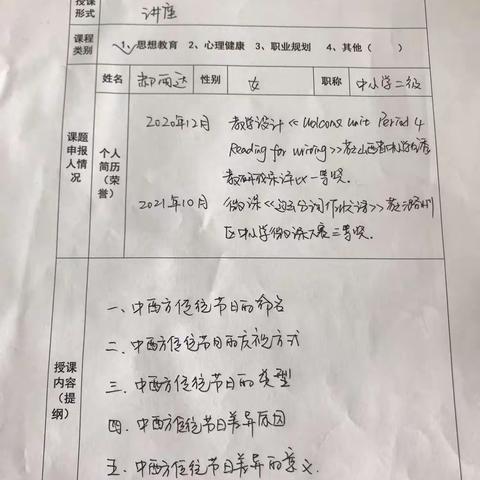 授课
形式 讲座
课程
类别 1、思想教育 2、心理健康 3、职业规划 4、其他（ ）
姓名 郝丽达 性别 女 职称 中小学二级
课题
申报
人情
况
个人
简历
（荣
誉）
2020年12月 教学设计《Welcome Unit Period 4
Reading for Writing》获山西省中小学
教研成果评比一等奖.
2021年10月 微课《过去分词作状语》获潞州
区中小学微课大赛三等奖.
授课
内容
（提
纲）
一、中西方传统节日的命名
二、中西方传统节日的庆祝方式
三、中西方传统节日的类型
四、中西方传统节日差异原因
五、中西方传统节日差异的意义.